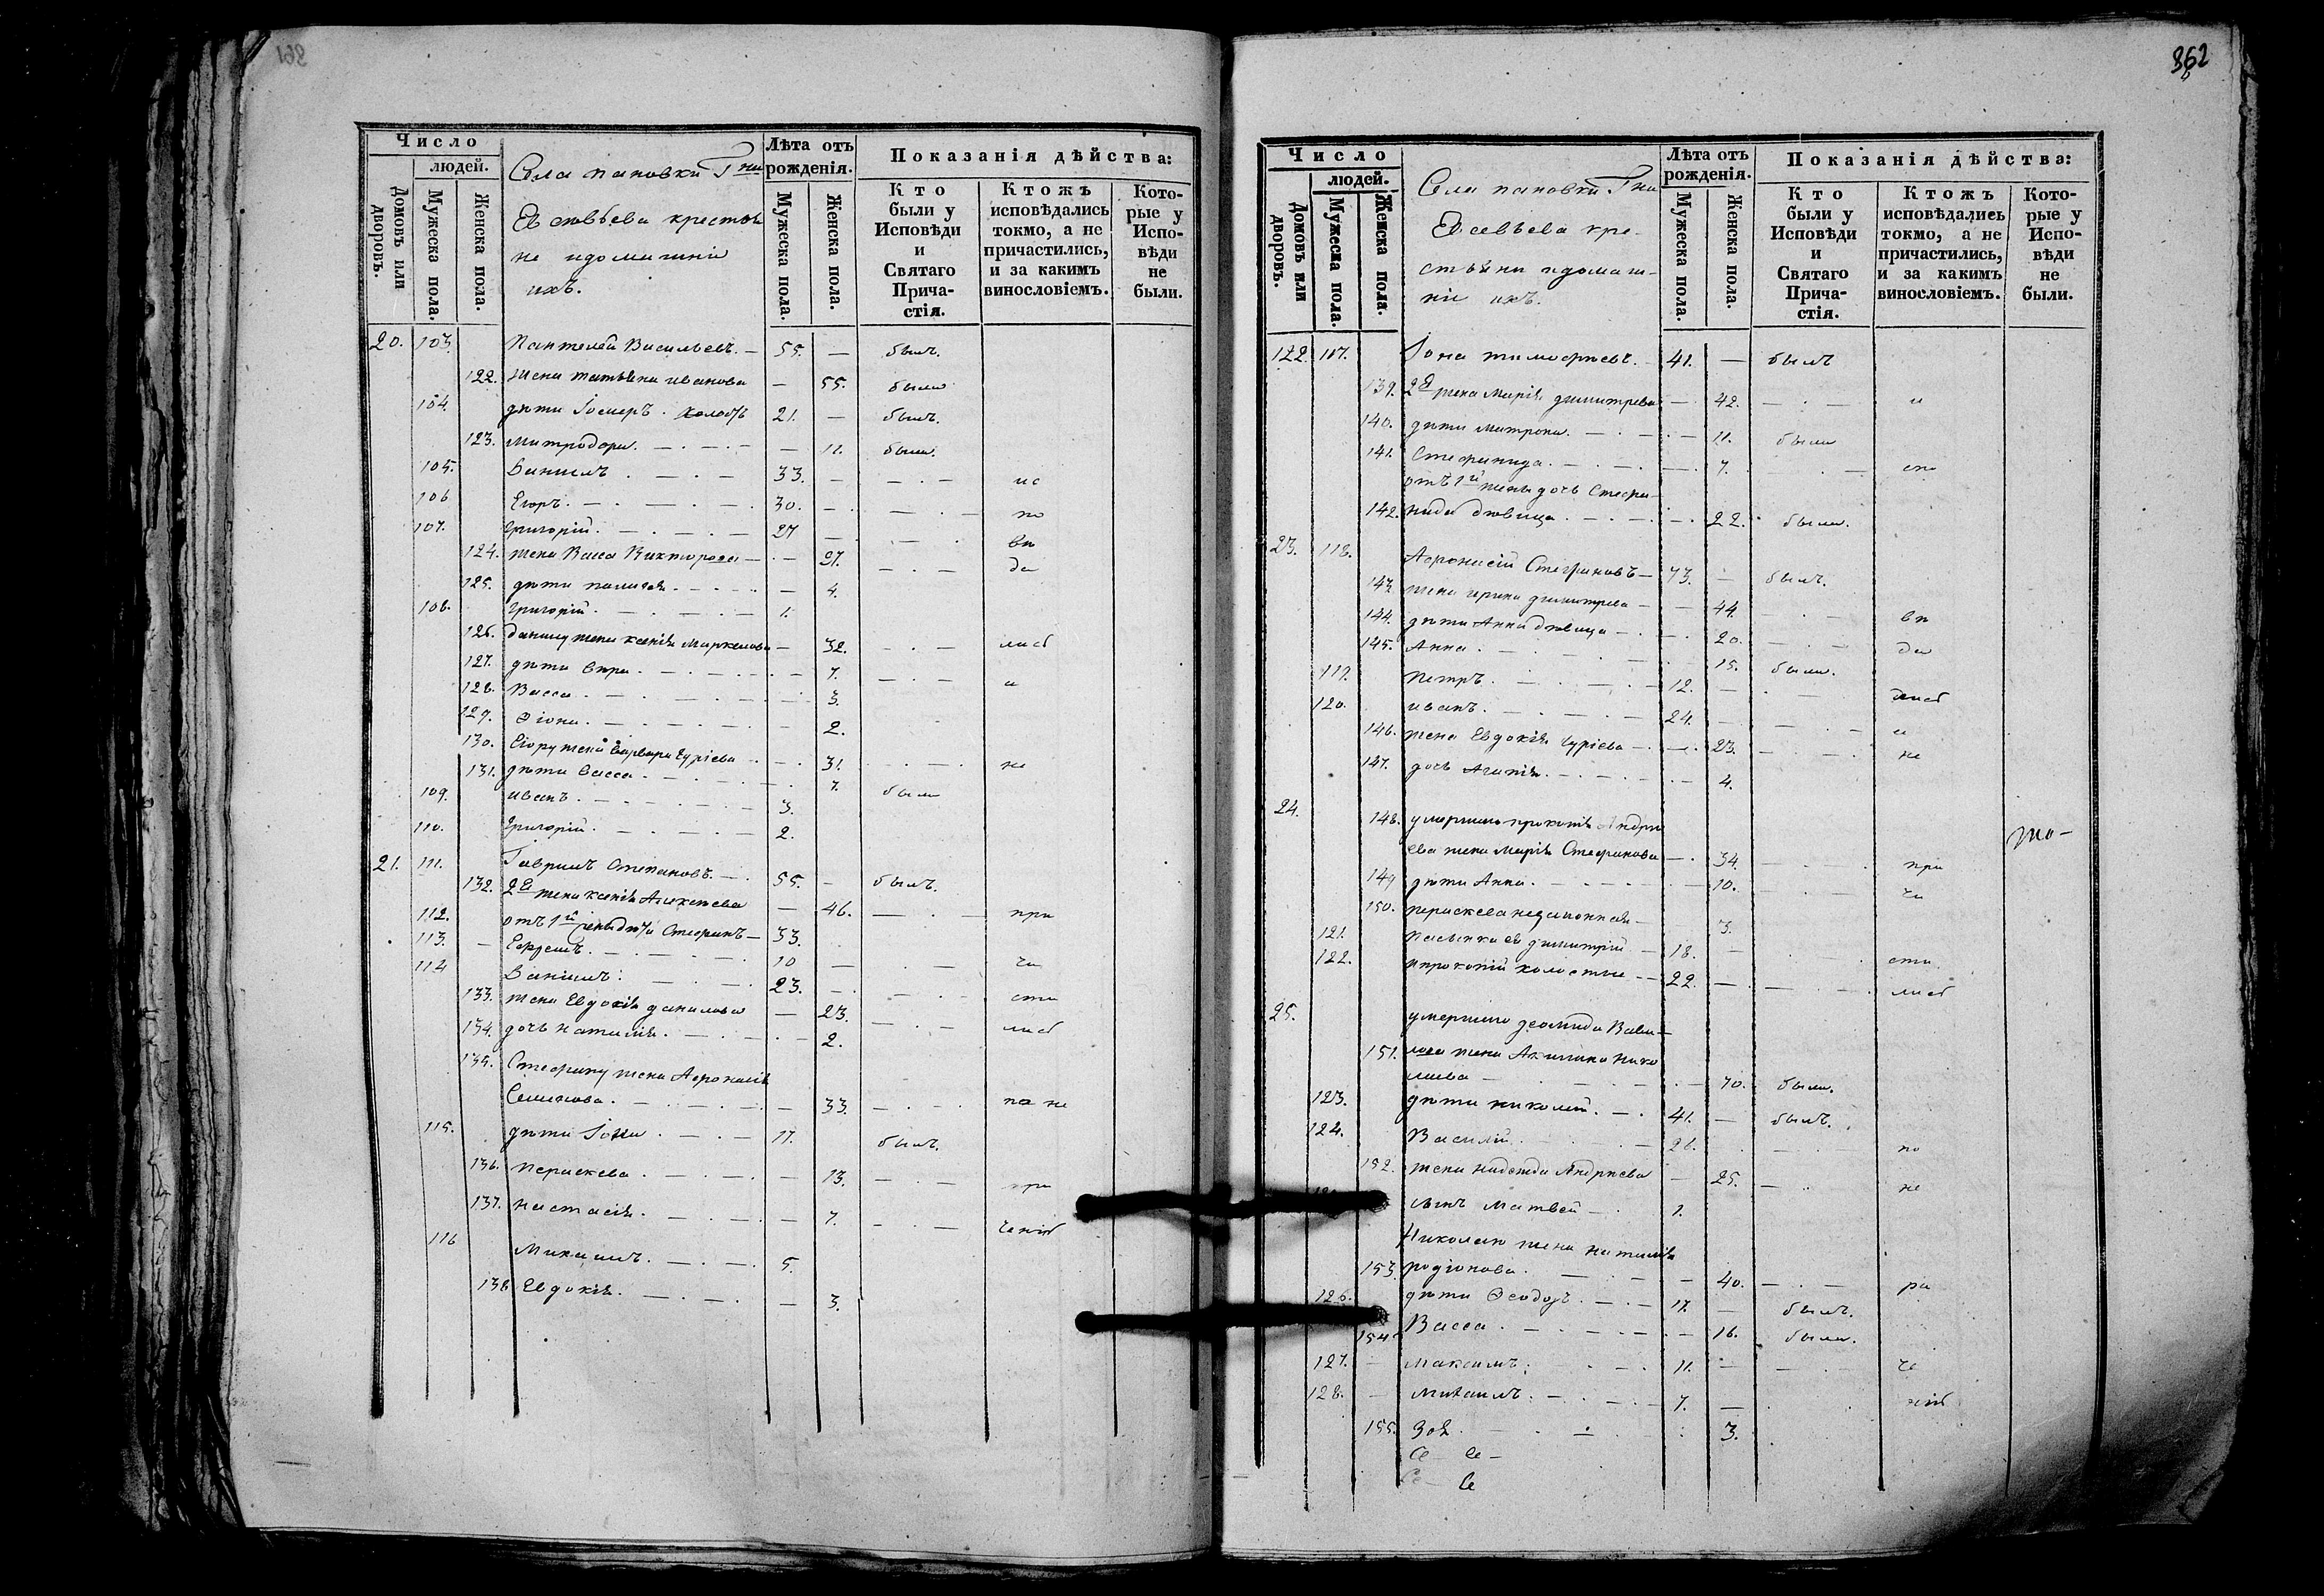 361
Число
людей.
Домовъ или дворовъ.
Мужеска пола.
Женска пола.
Села пановки Гжи
Евсевьева крестья
не идомашнiи
ихъ.
Лѣта отъ рожденiя.
Мужеска пола.
Женска пола.
Показанiя дѣйства:
Кто были у Исповѣди и Святаго Прича-стiя.
Ктожъ исповѣдались токмо, а не причастились, и за какимъ винословiемъ.
Кото-рые у Испо-вѣди не были.
20. 103. Пантелей Васильевъ. — 55. — былъ.
122. Жена татьяна иванова — 55. была
104. дѣти Холостъ 21. — былъ.
123. митродора. — 11. была.
105. Данилъ — 33. — ис
106 Егоръ. — 30. — по
107. Григорiй. — 27 — вѣ
124. жена Васса Викторова — 27. — да
125. дѣти — 4.
108. Григорiй. — 1.
126. данилу жена ксенiя Маркелова — 32. — лисѣ
127. дѣти вѣра. — 7. — и
128. Васса. — 3.
129. Ѳiона. — 2.
130. Егору жена Варвара Гурiева — 31. — не
131. дѣти васса. — 7. была
109. иванъ. — 3.
110. Григорiй. — 2.
21. 111. Гаврилъ Степановъ. — 55. — былъ.
132. 2я жена ксенiя — 46. — при
112. отъ 1й жены дѣти Стефанъ — 33.
113. — Ефремъ. — 10 — ча
114 Данiилъ. — 23. — сти
133. жена Евдокiя данилова — 23. — лисѣ
134. дочь наталiя. — 2.
135. Стефану жена Афонасiя
Семенова. — 33. — па не
115. дѣти Iона. — 17. былъ.
136. параскева. — 13. — ра
137. настасiя. — 7. — ченiѣ
116 Михаилъ. — 5.
138 Евдокiя. — 3.
362
Число
людей.
Домовъ или дворовъ.
Мужеска пола.
Женска пола.
Села пановки Гжи
Евсевьева кре-
стьяни идомаш-
нiе ихъ.
Лѣта отъ рожденiя.
Мужеска пола.
Женска пола.
Показанiя дѣйства:
Кто были у Исповѣди и Святаго Прича-стiя.
Ктожъ исповѣдались токмо, а не причастились, и за какимъ винословiемъ.
Кото-рые у Испо-вѣди не были.
122. 117. Iона тимофѣевъ. — 41. — былъ
139. 2я жена Марiя димитрева — 42. — и
140. дѣти матрона. — 11. была
141. Стефанида. — 7. — спо
отъ 1й жены дочь Стефа-
142. нида дѣвица. — 22. была.
23. 118. Афонасiй Стефановъ — 73. — былъ.
143. жена ирина димитрева — 44. — вѣ
144. дѣти Анна дѣвица — 20. — да
145. Анна. — 15. была.
119. Петръ. — 12. — лисѣ
120. иванъ. — 24. — и
146. жена Евдокiя Гурiева — 23. — не
147. дочь — 4.
24. 148. умершаго прокопiя Андре
ева жена Марiя Стефанова — 34. — при то-
149 дѣти Анна. — 10. — ча
150. параскева незаконная — 3.
121. Пасынки ея димитрiй — 18. — сти
122. ипрокопiй холостые — 22. — лисѣ
25. умершаго Вави-
151. лова жена Акилина нико
лаева — 70. была.
123. дѣти николай. — 41. — былъ.
124. Василiй. — 26. — по
152. жена надежда Андреева — 25. — не
сынъ Матвей — 1.
Николаю жена наталiя
153. родiонова. — 40. — ра
126. дѣти Ѳеодоръ. — 17. — былъ.
154. Васса. — 16. была.
127. — максимъ. — 11. — че
128. — михаилъ. — 7. — нiѣ
155. Зоя. — 3.